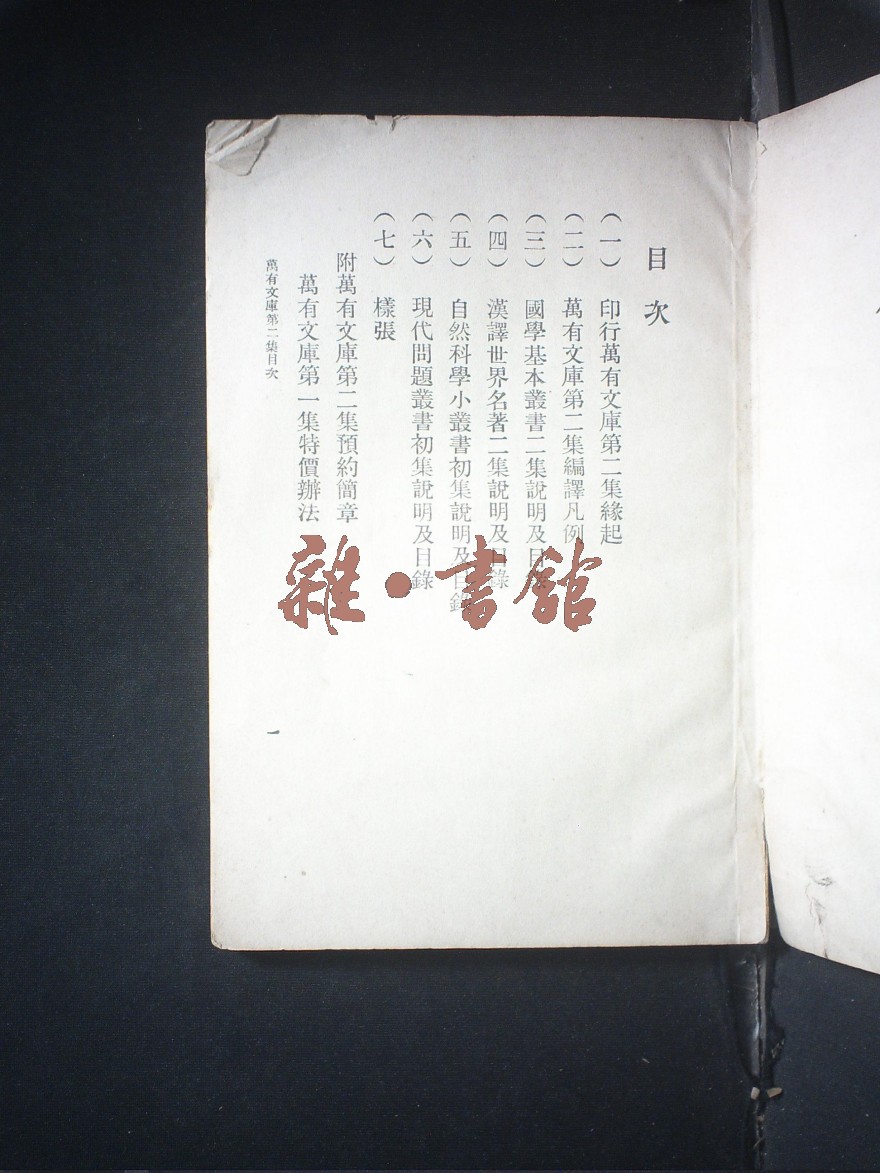 目次
（一）　印行萬有文庫第二集緣起
（二）　萬有文庫第二集編譯凡例
（三）　國學基本叢書二集說明及目錄
（四）　漢譯世界名著二集說明及目錄
（五）　自然科學小叢書初集說明及目錄
（六）　現代問題叢書初集說明及目錄
（七）　樣張
附萬有文庫第二集預約簡章
萬有文庫第一集特價辦法
萬有文庫第二集目次
一
雜·書館